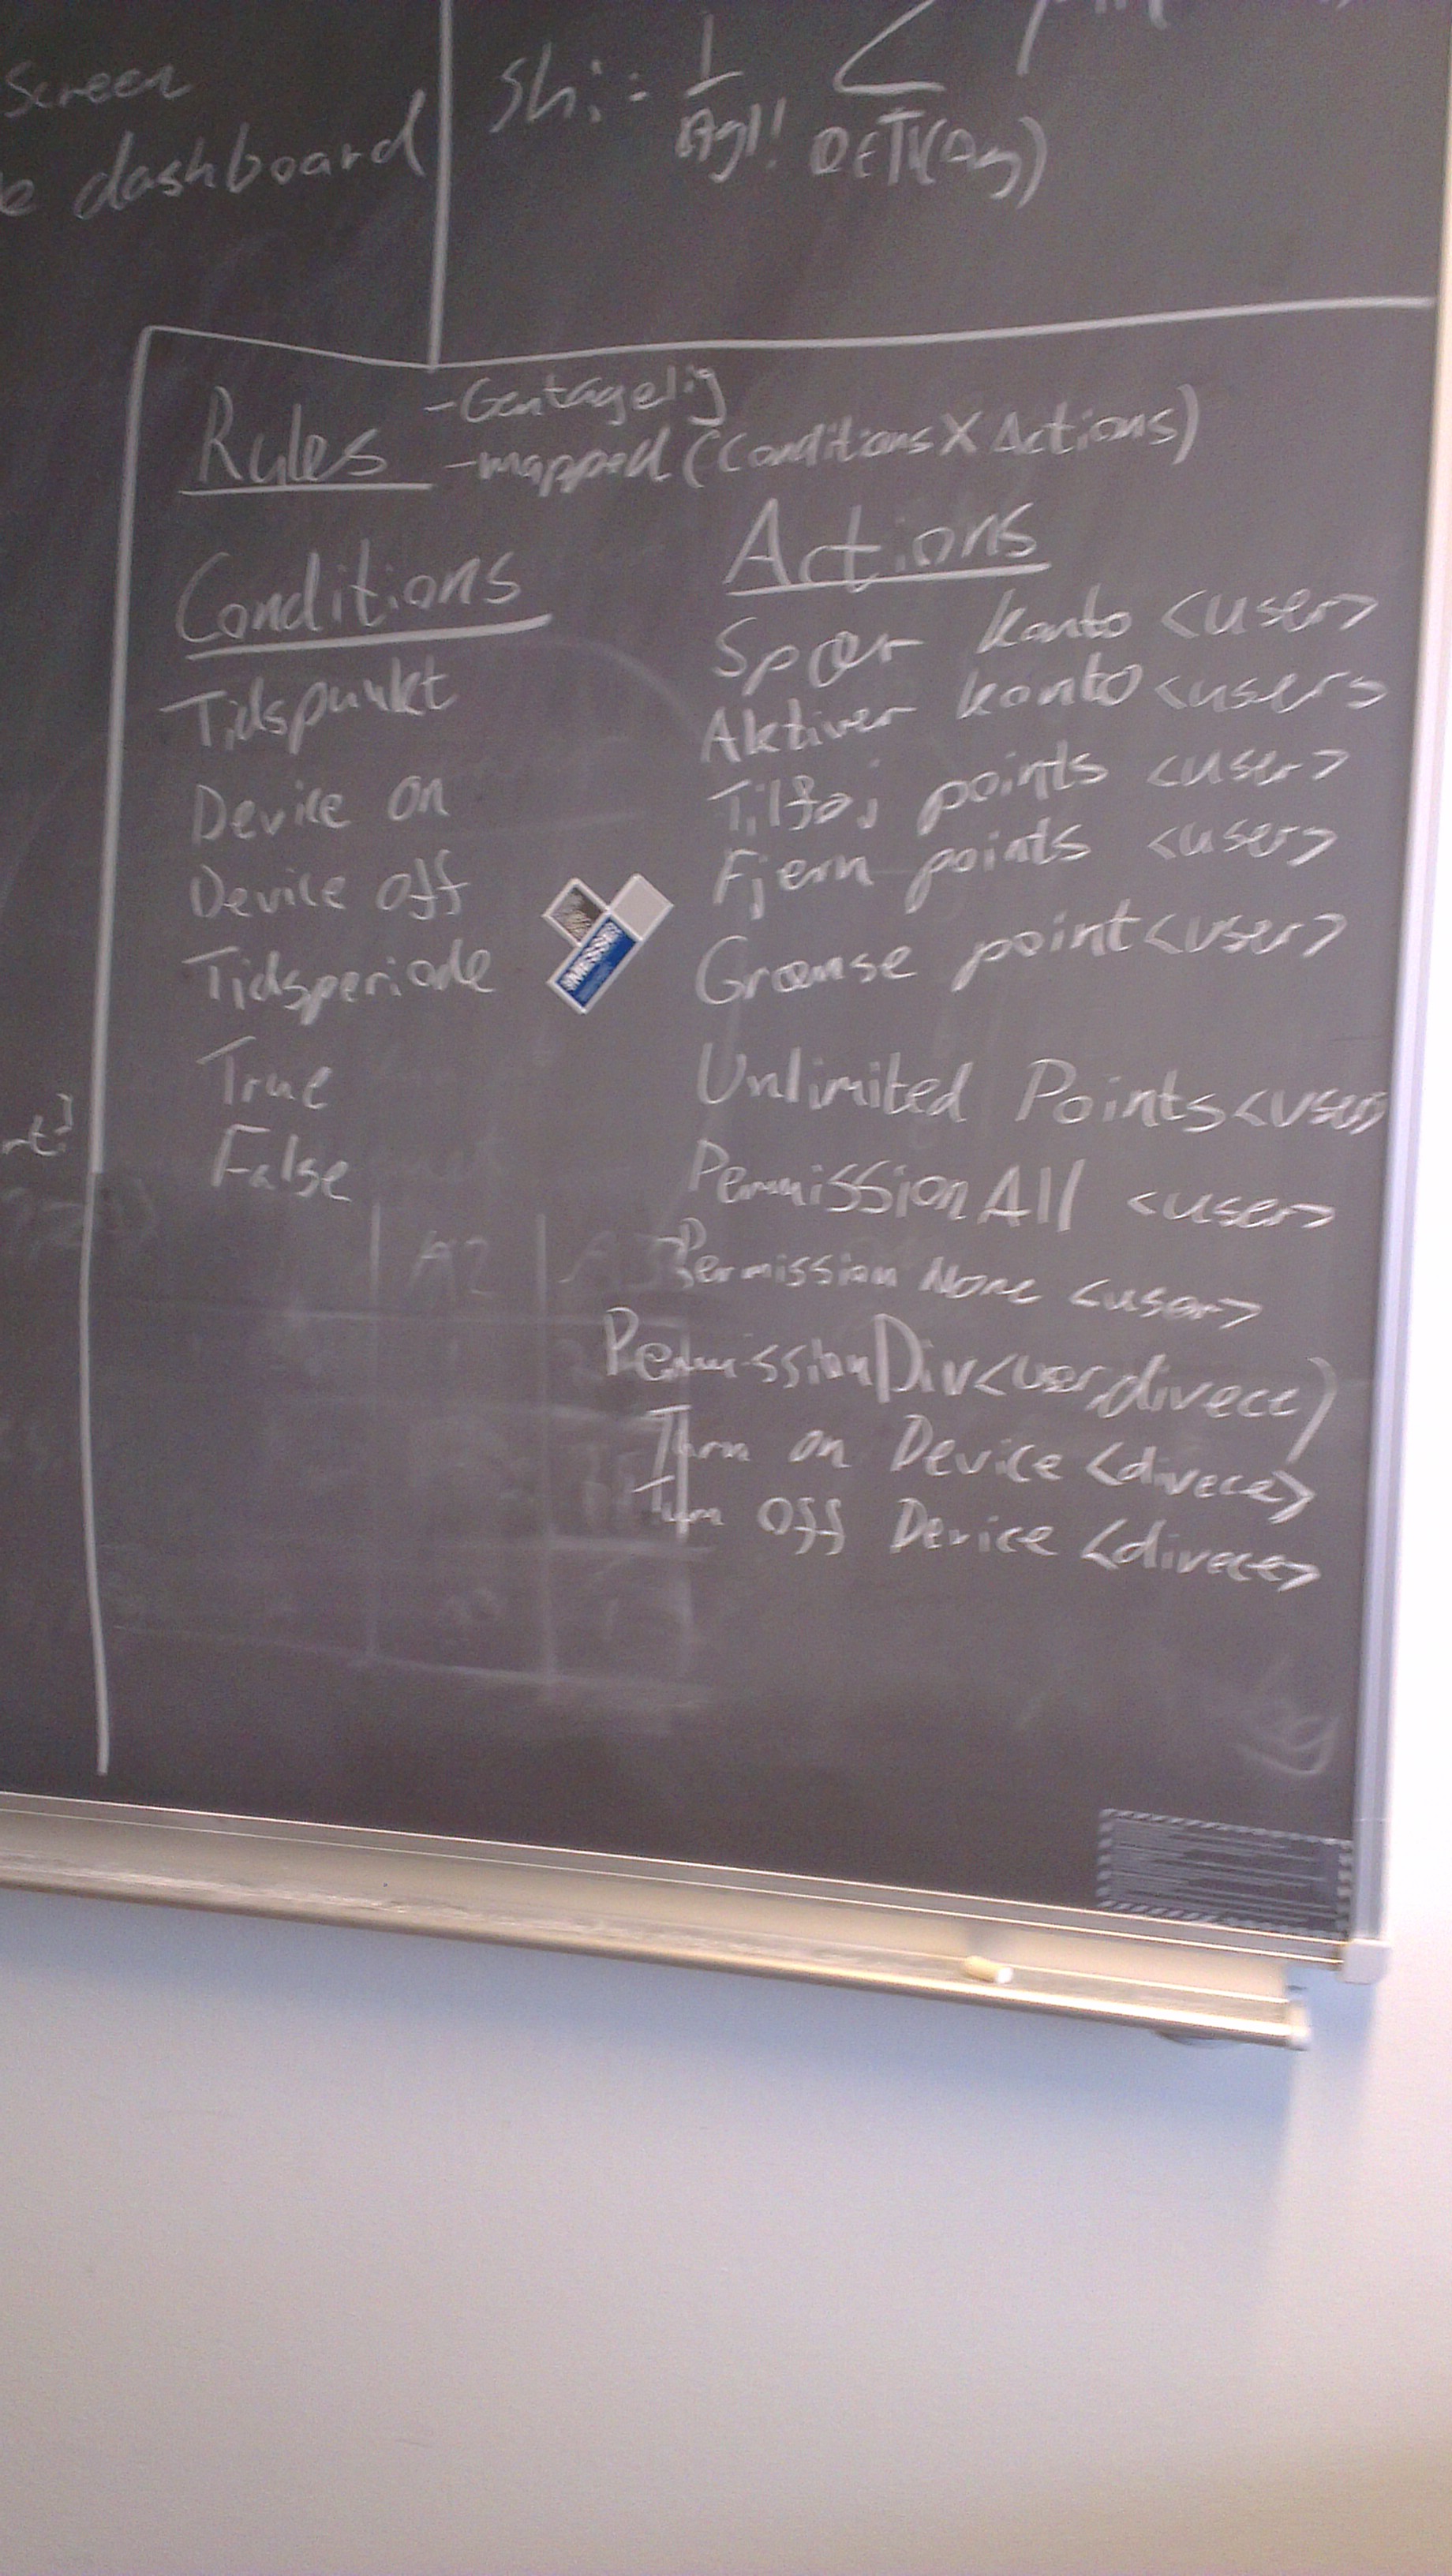 Screen
dashboard
Shi =
Rules
-Gentagelig
-mapped (Conditions X Actions)
Conditions
Tidspunkt
Device on
Device off
Tidsperiode
True
False
Actions
Spær konto <user>
Aktiver konto <user>
Tilføj points <user>
Fjern points <user>
Grænse point <user>
Unlimited Points <user>
Permission All <user>
Permission None <user>
PermissionDiv <user, divece)
Turn on Device <divece>
Turn Off Device <divece>
A2